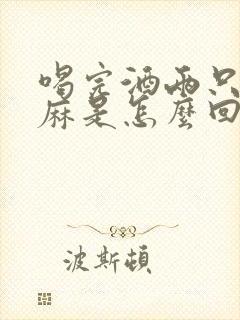 喝完酒兩只
麻是怎麼回
波斯頓